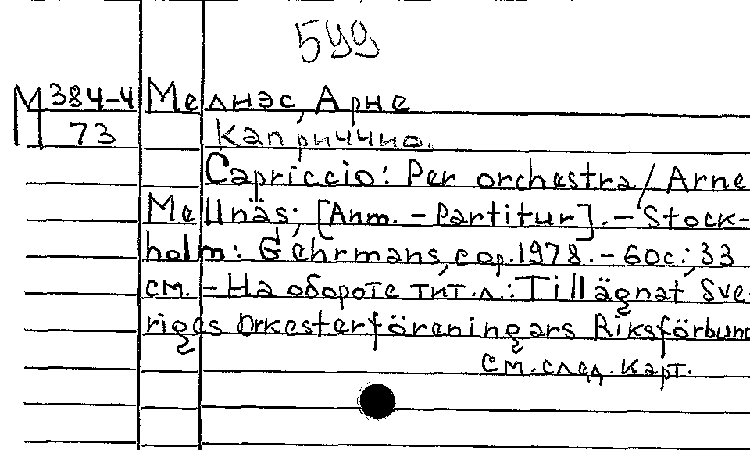 599
М 384-4 Мелнэс, Арне
73 Каприччио.
Capriccio: Per orchestra / Arne
Mellnäs; [Anm. - Partitur]. - Stock-
holm: Gehrmans, cop. 1978. - 60 с.; 33
см. - На обороте тит. л.: Tillägnat Sve-
riges Orkesterföreningars Riksförbund
см. след. карт.